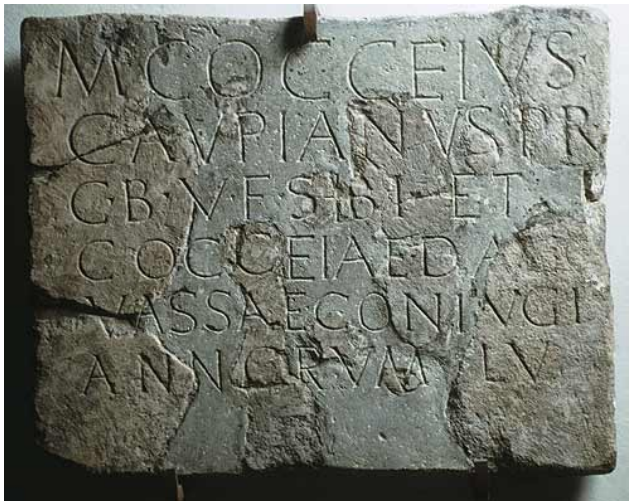 M COCCEIVS
CAVPIANVS PR
C·B·V·F·SIBI ET
COCCEIAE
VASSAE CONIVGI
ANNORVM LV